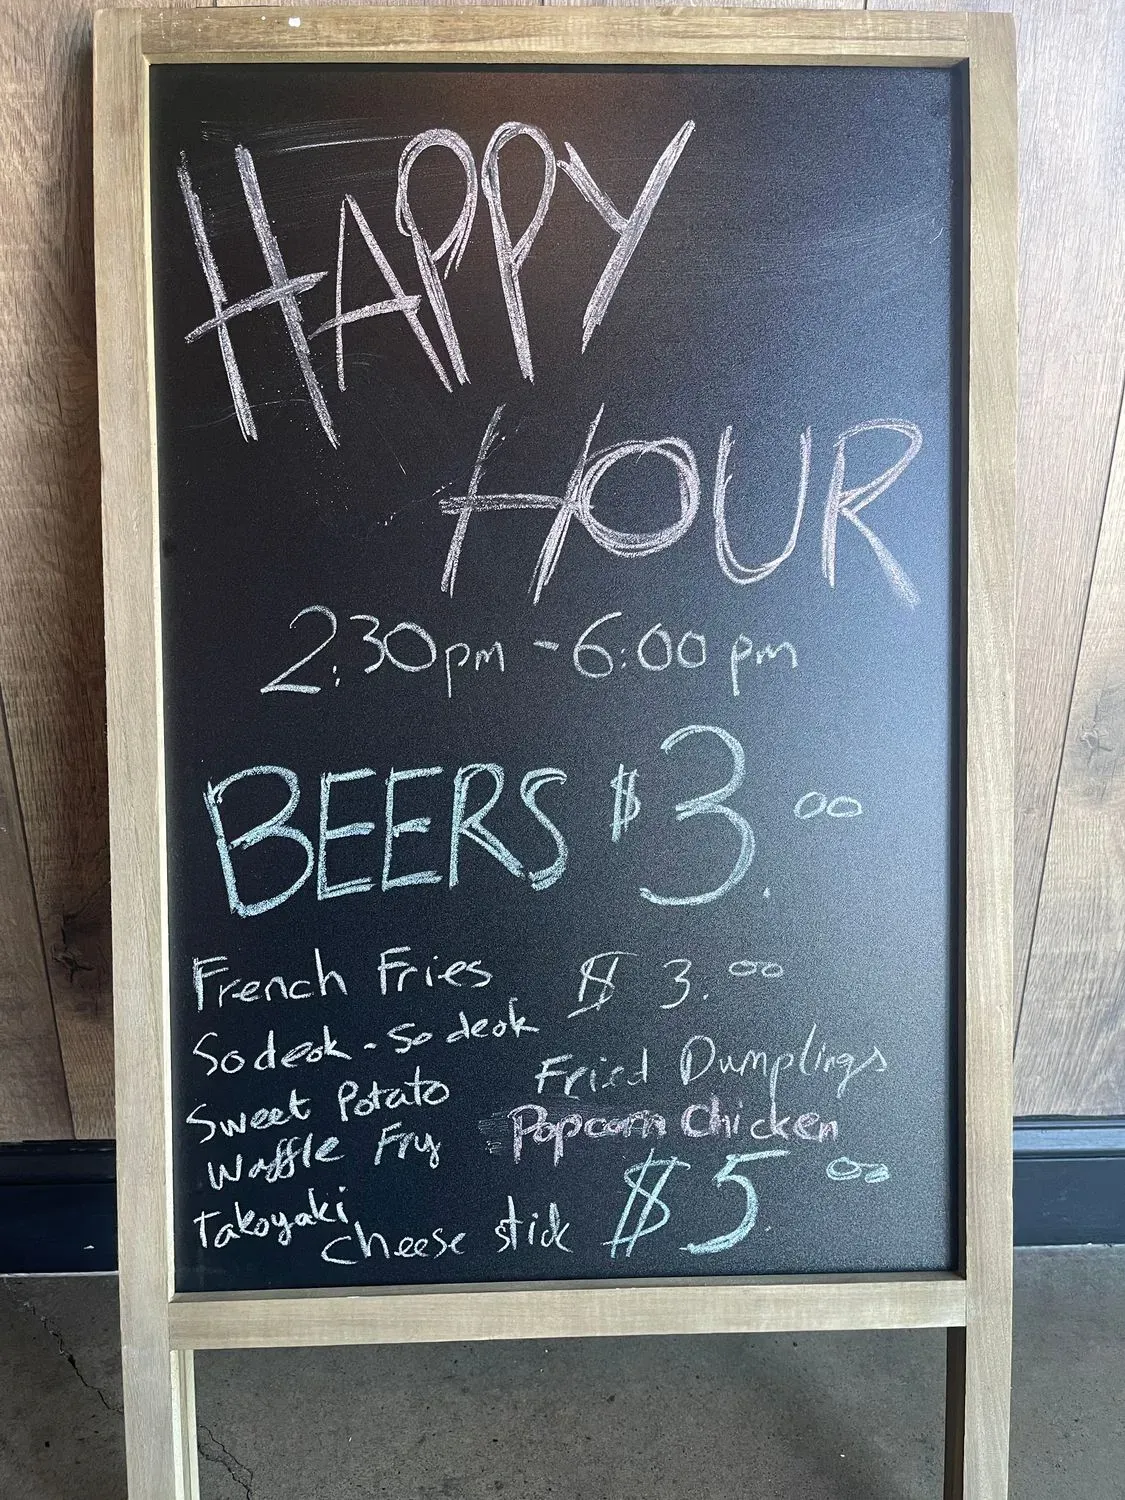 HAPPY
HOUR
2:30pm - 6:00 pm
BEERS $3.00
French Fries $ 3.00
Sodeok - Sodeok
Sweet Potato
Waffle Fry
Fried Dumplings
Popcorn Chicken
Takoyaki
Cheese stick $5.00